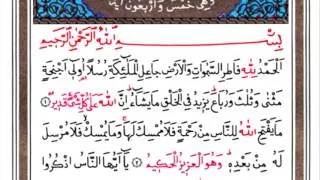 وهي خمس وأربعون آية
بِسْمِ اللهِ الرَّحْمٰنِ الرَّحِيمِ
اَلْحَمْدُ لِلّٰهِ فَاطِرِ السَّمٰوَاتِ وَالْاَرْضِ جَاعِلِ الْمَلٰٓئِكَةِ رُسُلًا اُولِٓى اَجْنِحَةٍ
مَثْنٰى وَثُلٰثَ وَرُبَاعَ يَزِيدُ فِى الْخَلْقِ مَايَشَٓاءُ اِنَّ اللهَ عَلٰى كُلِّ شَىْءٍ قَدِيرٌ ١
مَايَفْتَحِ اللهُ لِلنَّاسِ مِنْ رَحْمَةٍ فَلَامُمْسِكَ لَهَا وَمَايُمْسِكْ فَلَامُرْسِلَ
لَهُ مِنْ بَعْدِهِ وَهُوَ الْعَزِيزُ الْحَكِيمُ ٢ يَٓا اَيُّهَا النَّاسُ اذْكُرُوا